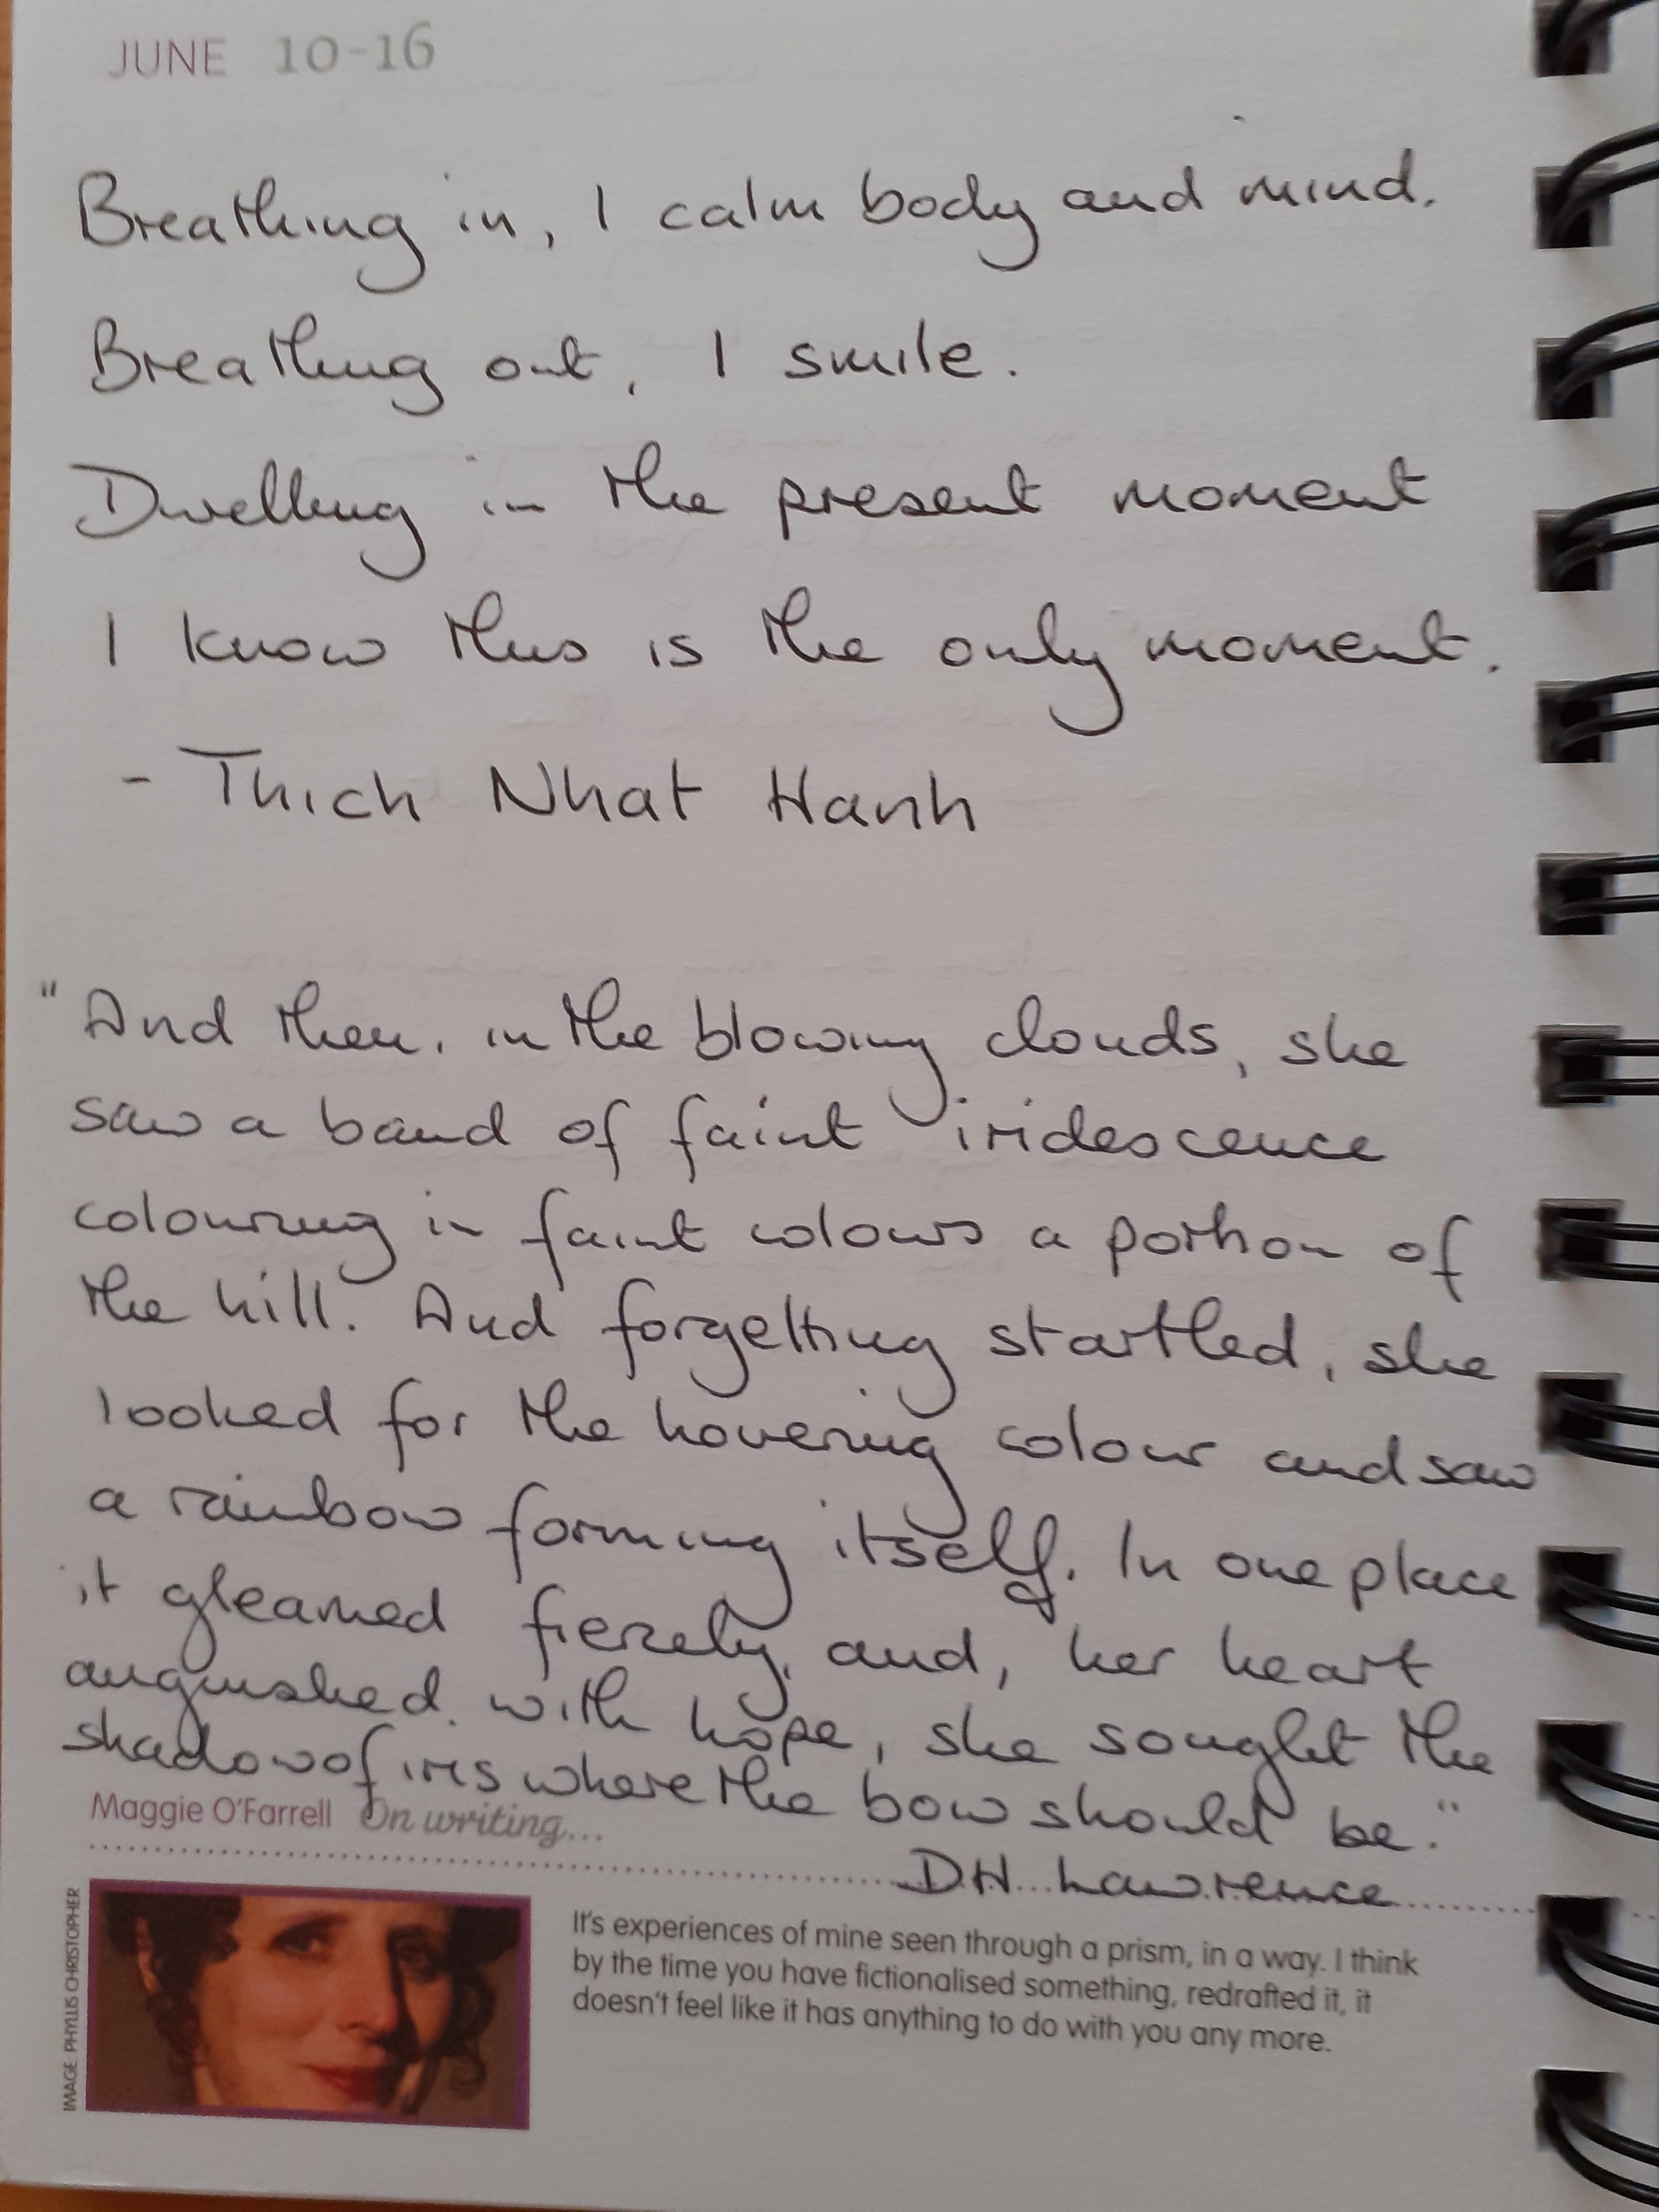 JUNE 10-16
Breathing in, I calm body and mind.
Breathing out, I smile.
Dwelling in the present moment
I know this is the only moment.
- Thich Nhat Hanh
"And then, in the blowing clouds, she
saw a band of faint iridescence
colouring in faint colours a portion of
the hill. And forgetting startled, she
looked for the hovering colour and saw
a rainbow forming itself. In one place
it gleamed fiercely, and, her heart
anguished with hope, she sought the
shadow of iris where the bow should be."
D.H. Lawrence
Maggie O'Farrell On writing...
IMAGE PHYLLIS CHRISTOPHER
It's experiences of mine seen through a prism, in a way. I think
by the time you have fictionalised something, redrafted it, it
doesn't feel like it has anything to do with you any more.